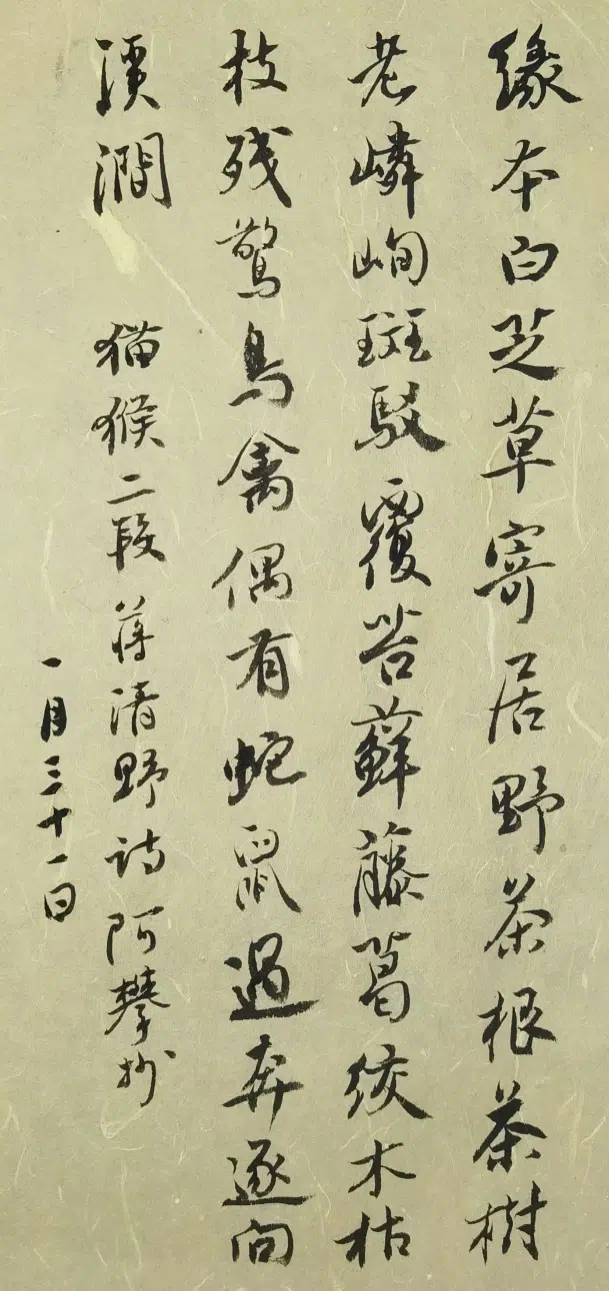 缘本白芝草寄居野茶根茶樹
老嶙峋斑駁覆苔蘚藤葛绞木枯
枝残驚鳥禽偶有蛇鼠過奔逐向
溪澗 猫猴二段 蒋清野诗 阿攀抄
一月三十一日